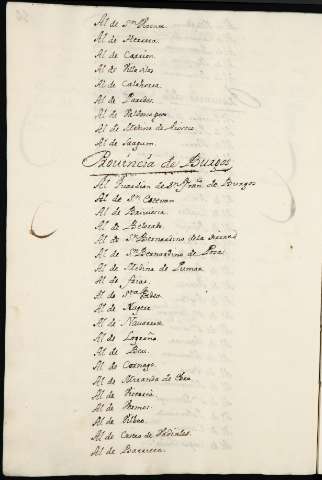 Al de Sn
Al de Herrera.
Al de Carrion.
Al de
Al de Calahorra.
Al de Paredes.
Al de
Al de Medina de
Al de Saagum.
Provincia de Burgos
Al Guardian de Sn Fran.co de Burgos
Al de Sn Estevan
Al de
Al de Belorado.
Al de Sn Bernardino de la
Al de Sn Bernardino de Poza
Al de Medina de Pumar
Al de frias.
Al de Sta
Al de Nagera
Al de Navarrete.
Al de Logroño
Al de
Al de Cornago.
Al de Miranda de Ebro.
Al de Vitoria.
Al de Bermeo.
Al de Bilbao.
Al de Castro de Vrdiales.
Al de Barrieta.